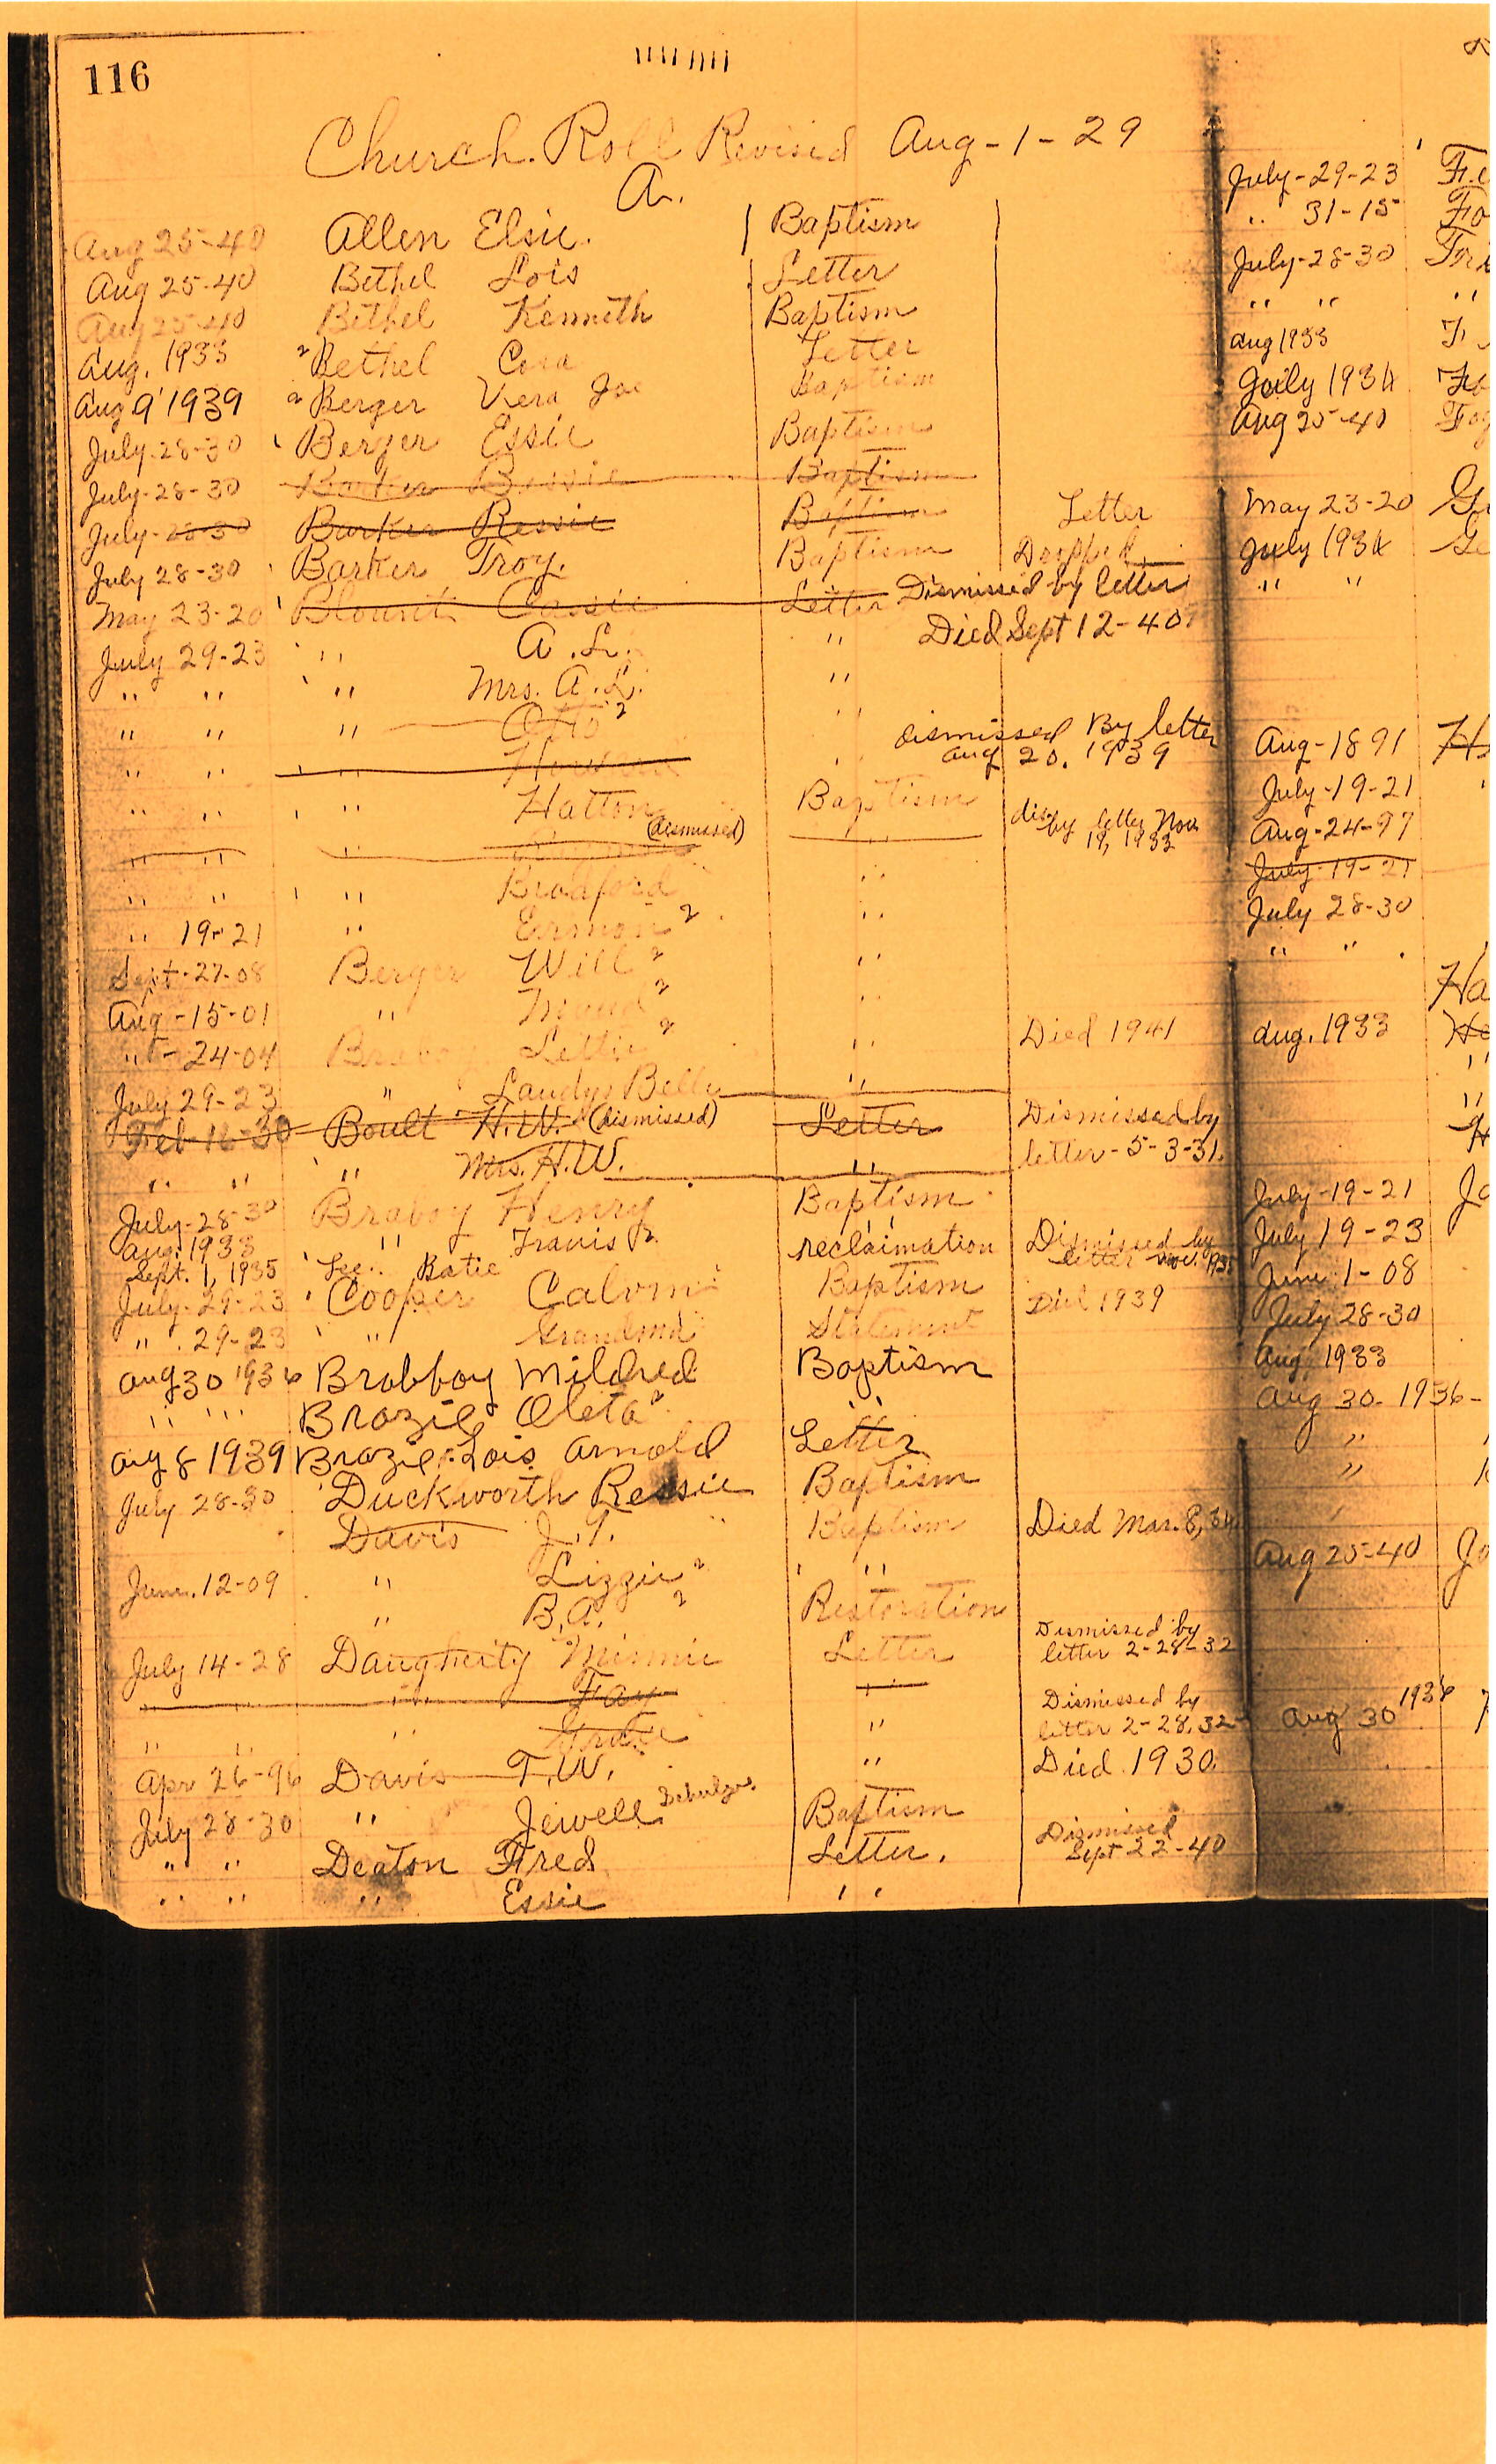 116
Church Roll Revised Aug-1-29
A.
Aug 25-40 Allen Elsie. Baptism
Aug 25-40 Bethel Lois Letter
Aug 25-40 Bethel Kenneth Baptism
Aug. 1933 2 Bethel Cora Letter
Aug 9 1939 2 Berger Vera Joe Baptism
July-28-30 Berger Essie Baptism
July-28-30 Barker Bessie Baptism
July-28-30 Barker Ressie Baptism Letter
July 28-30 Barker Troy. Baptism Dropped
May 23-20 Blount Cassie Letter Dismissed by letter
July 29-23 " A. L. " Died Sept 12-40
" " " Mrs. A. L. "
" " " Otto 2 "
" " " Howard " dismissed By letter
Aug 20. 1939
" " " Hatton Baptism
" " " (dismissed) dis by letter Nov
19, 1933
" " " Bradford "
" 19-21 " Ermon 2 "
Sept-27-08 Berger Will 2 "
Aug-15-01 " Maud 2 "
" - 24-04 Lettie 2 " Died 1941
July 29-23 " Laudys Belle "
Feb-16-30 Boult H.W. (dismissed) Letter Dismissed by
letter-5-3-31.
" " " Mrs. H.W. "
July-28-30 Braboy Henry Baptism
Aug. 1933 " Travis 2 reclaimation Dismissed by
letter Nov. 1935
Sept. 1, 1935 Lee Batie
July-29-23 Cooper Calvin Baptism Died 1939
" . 29-23 " Grandma Statement
Aug 30 1936 Brabboy Mildred Baptism
" " Brazil Oleta 2 "
Aug 8 1939 Brazil Lois Arnold Letter
July 28-30 Duckworth Ressie Baptism
Davis J. T. Baptism Died Mar. 8, 34
June. 12-09 " Lizzie 2 "
" B. A. 2 Restoration
July 14-28 Daugherty Minnie Letter Dismissed by
letter 2-28-32
" " " Fay " Dismissed by
letter 2-28.32
" " " "
Apr 26-96 Davis T.W. " Died 1930.
July 28-30 " Jewell Baptism
" " Deaton Fred Letter. Dismissed
Sept 22-40
" " " Essie "
July-29-23
" 31-15 Fo
July-28-30
" " "
Aug 1933
July 1934
Aug 25-40
May 23-20
July 1934
" "
Aug-1891
July-19-21
Aug-24-97
July-19-21
July 28-30
" "
Ha
Aug. 1933
July-19-21
July 19-23
June 1-08
July 28-30
Aug 1933
Aug 30. 1936-
"
"
Aug 25-40
Aug 30 1936